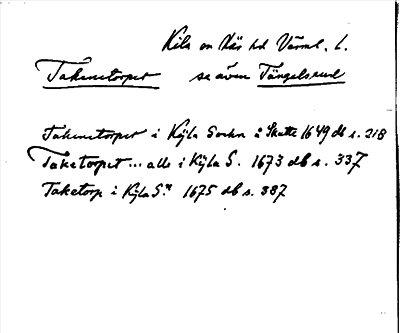 Kila sn Näs hd Värml. l.
Takenetorpet se även Tängelsrud
Takenetorpet i Kijla Sochn å Skatte 1649 db s. 218
Taketorpet... alle i Kijla S. 1673 db s. 337
Taketorp i Kijla S:n 1675 db s. 387